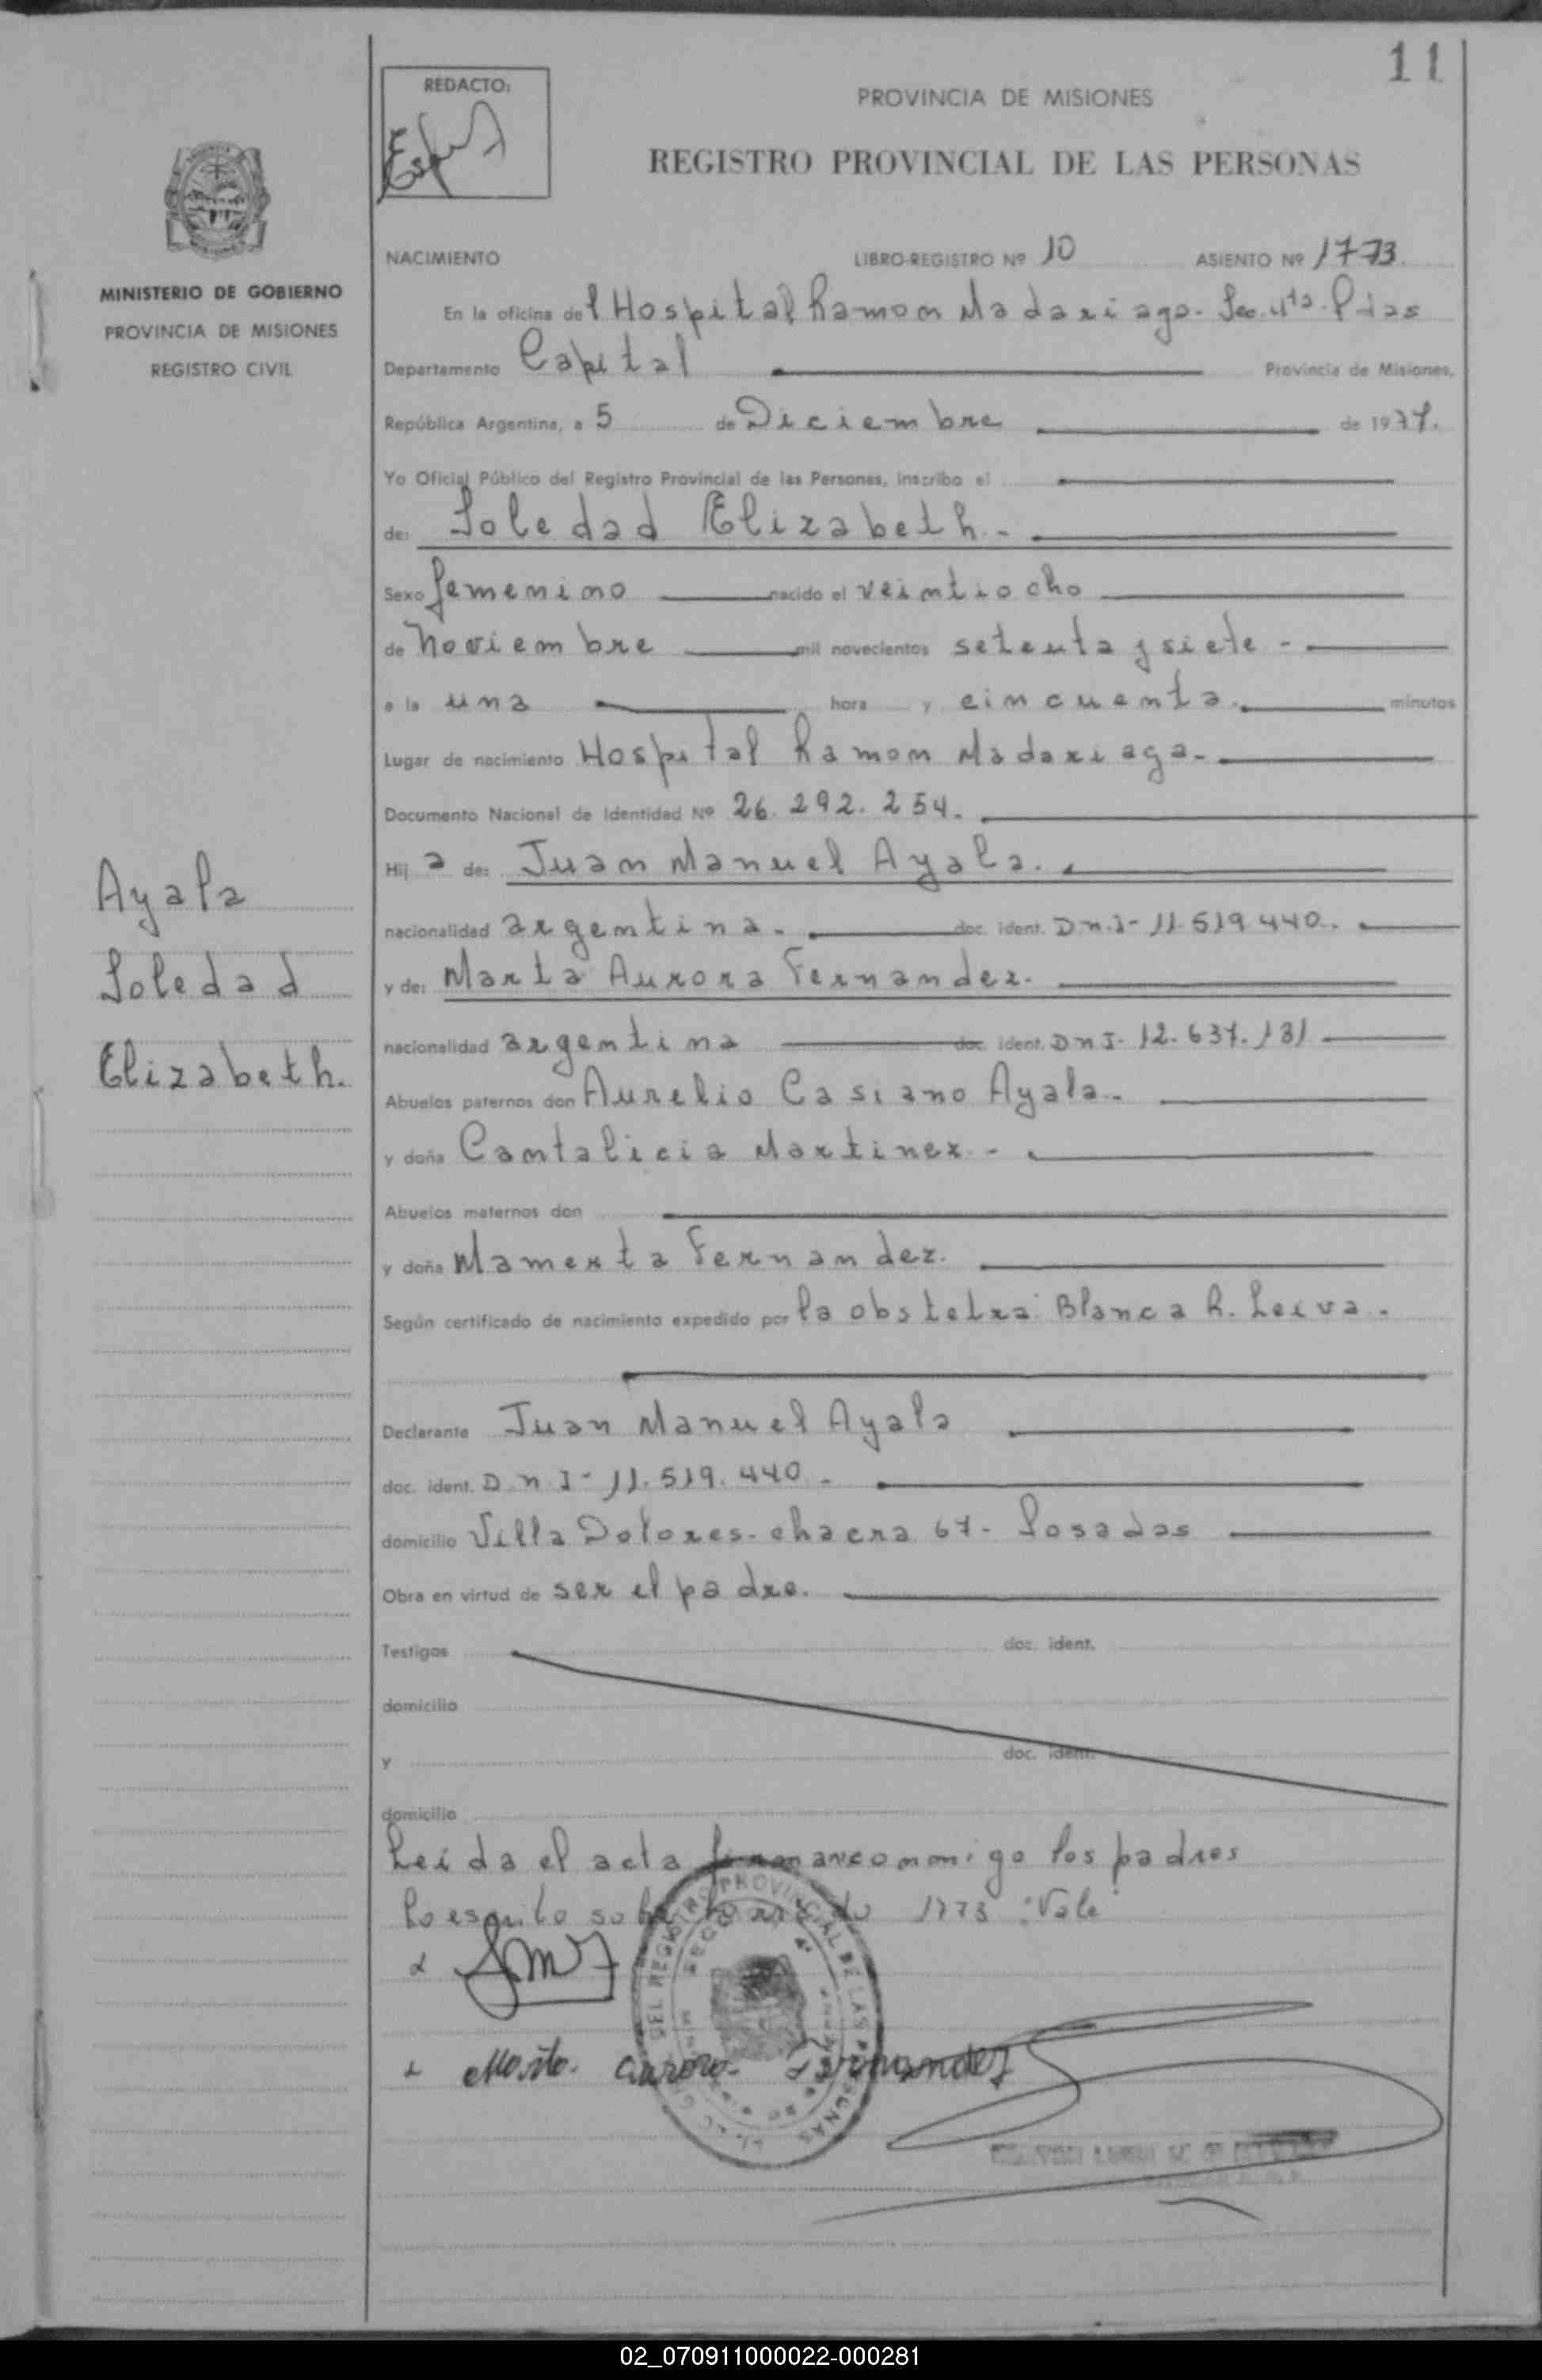 11
REDACTO:
PROVINCIA DE MISIONES
REGISTRO PROVINCIAL DE LAS PERSONAS
MINISTERIO DE GOBIERNO
PROVINCIA DE MISIONES
REGISTRO CIVIL
Ayala
Soledad
Elizabeth.
NACIMIENTO LIBRO-REGISTRO Nº 10 ASIENTO Nº 1773.
En la oficina del Hospital Ramon Madariaga. Sec. 4ta. Pdas
Departamento Capital Provincia de Misiones,
República Argentina, a 5 de Diciembre de 1977.
Yo Oficial Público del Registro Provincial de las Personas, inscribo el
de: Soledad Elizabeth.-
Sexo femenino nacido el veintiocho
de noviembre mil novecientos setenta y siete -
a la una hora y cincuenta. minutos
Lugar de nacimiento Hospital Ramon Madariaga-
Documento Nacional de Identidad Nº 26.292.254.
Hij a de: Juan Manuel Ayala.
nacionalidad argentina. doc. ident. D.n.I- 11.519.440.
y de: Marta Aurora Fernandez.
nacionalidad argentina doc. ident. D n I- 12.637.131
Abuelos paternos don Aurelio Casiano Ayala.
y doña Cantalicia Martinez -
Abuelos maternos don
y doña Mamerta Fernandez.
Según certificado de nacimiento expedido por la obstetra Blanca R. Leiva.
Declarante Juan Manuel Ayala
doc. ident. D.n.I- 11.519.440.
domicilio Villa Dolores- chacra 67- Posadas
Obra en virtud de ser el padre.
Testigos doc. ident.
domicilio
y doc. ident.
domicilio
Leida el acta firman conmigo los padres
Lo escrito sobre borrado 1773 "Vale"
DEL REGISTRO PROVINCIAL DE LAS PERSONAS
Marta Aurora Fernandez
02_070911000022-000281